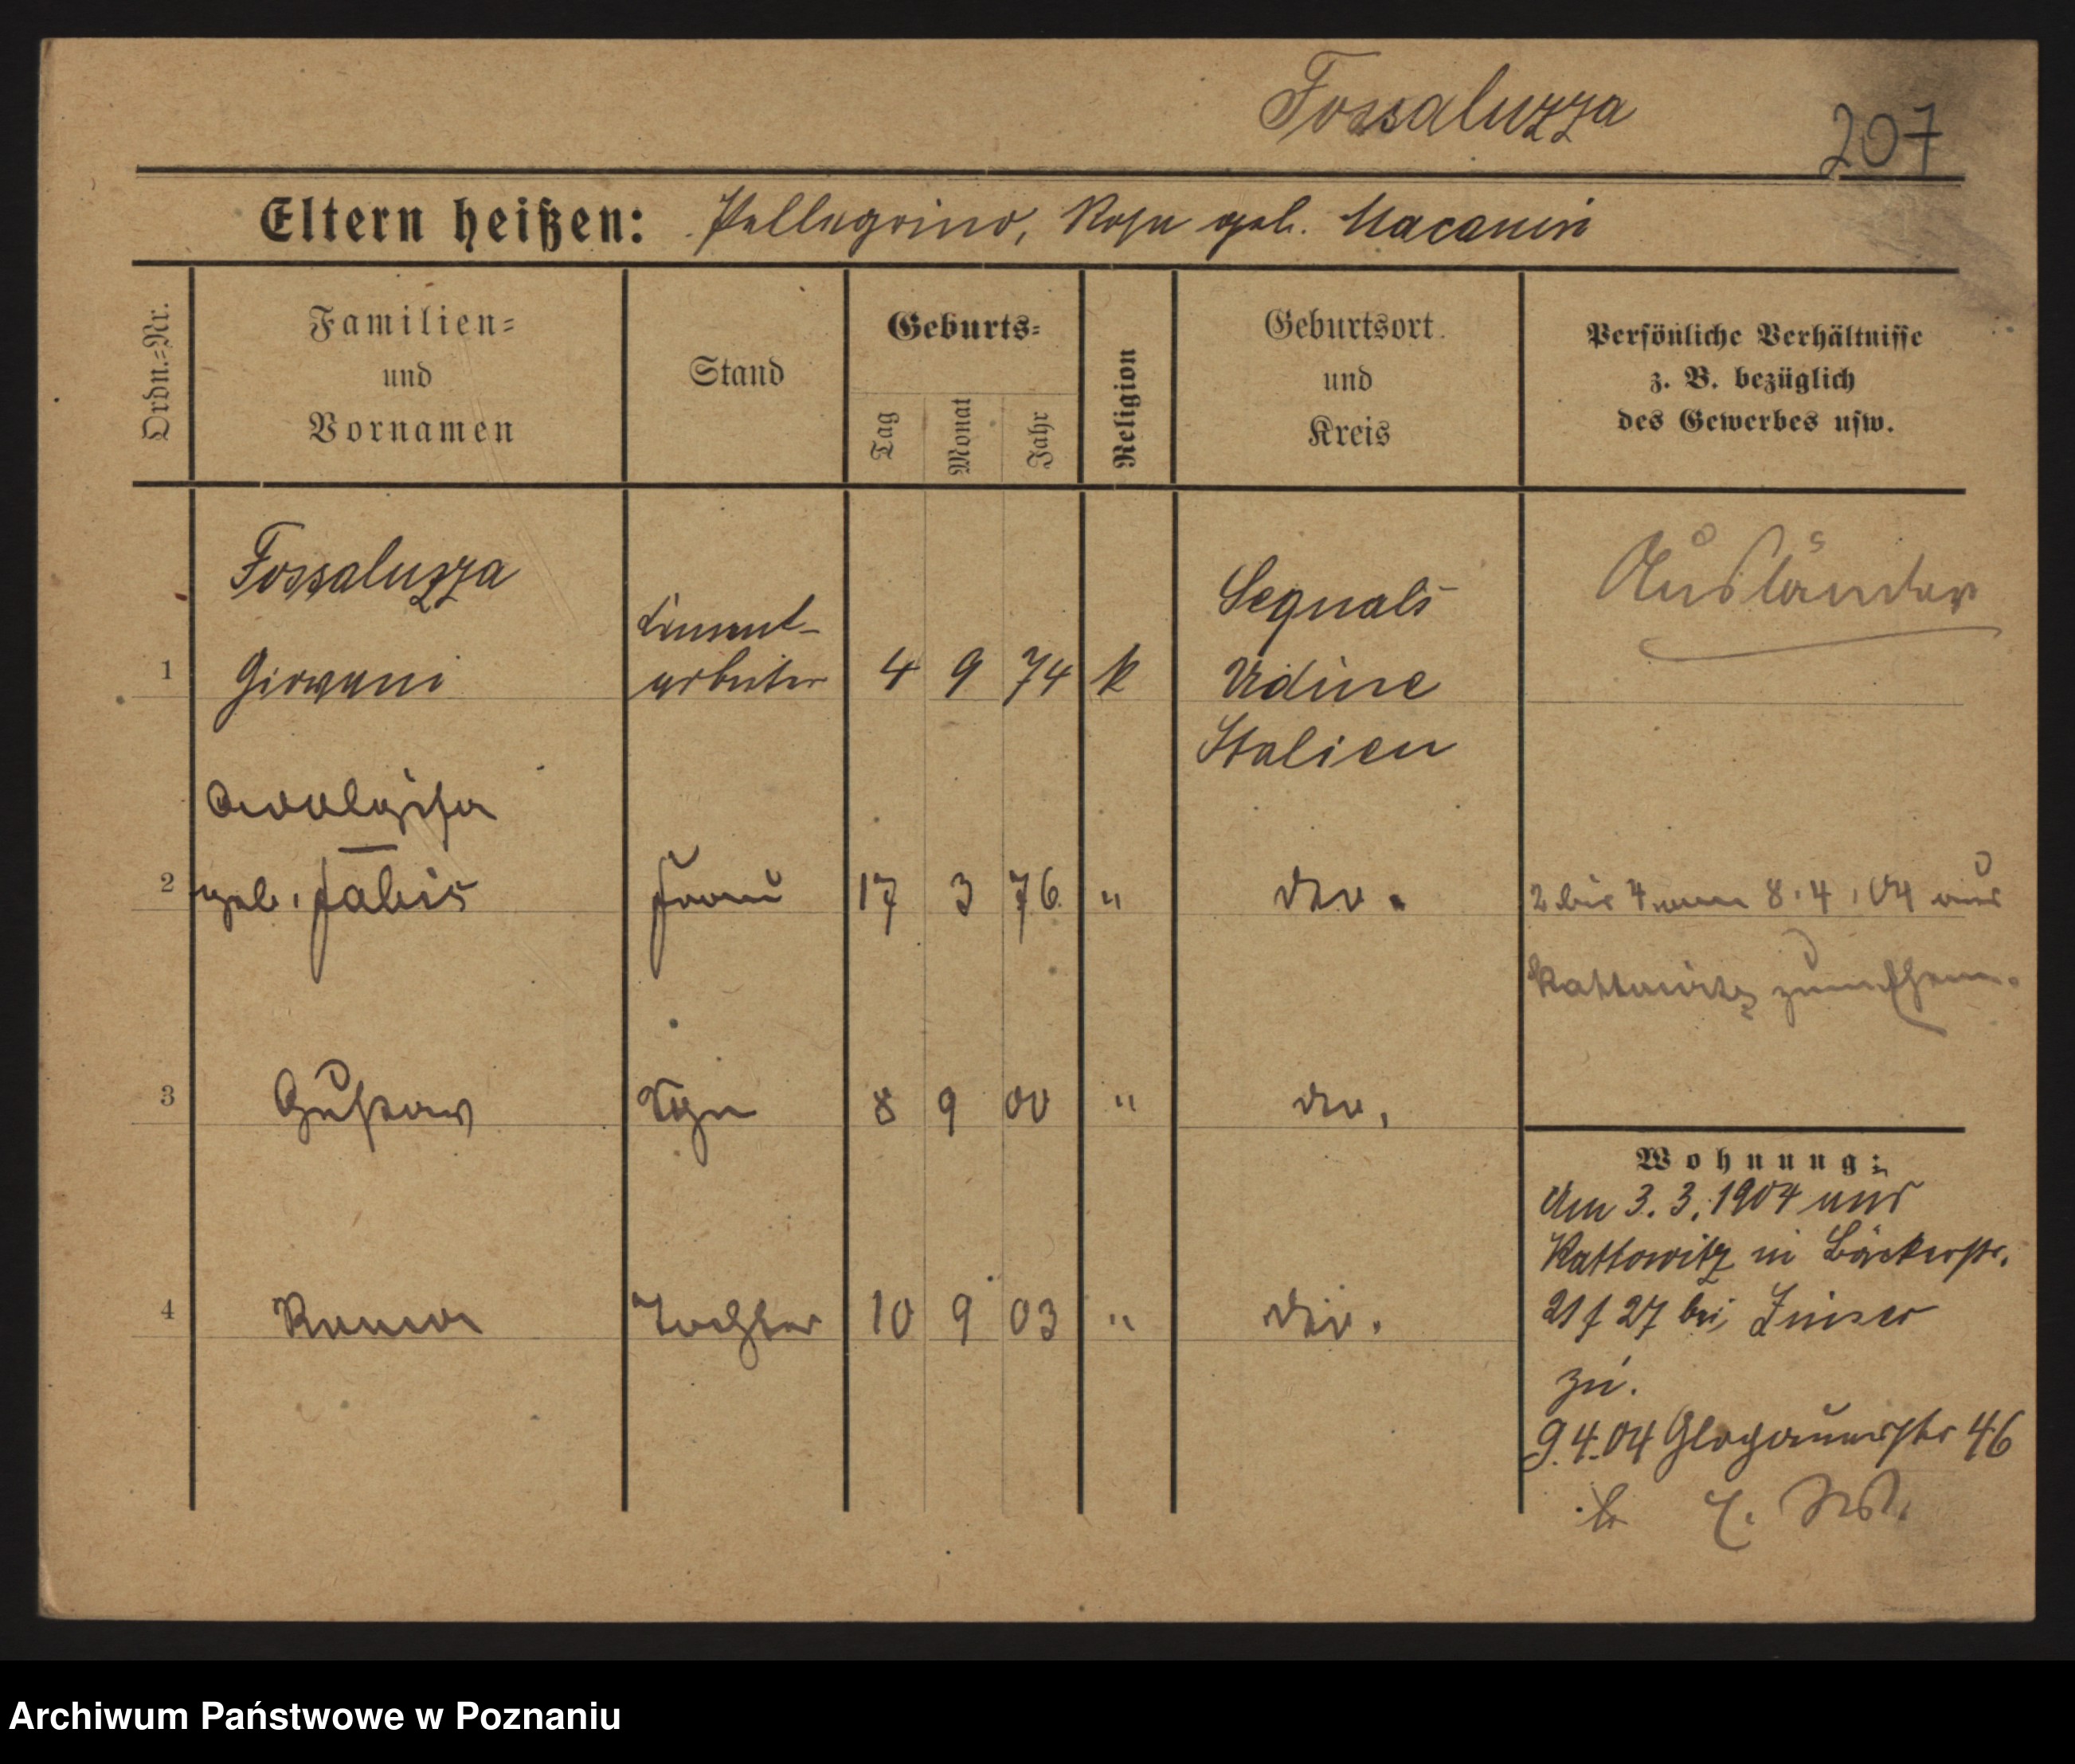 Fossaluzza
207
Eltern heißen: Pellegrino, Rosa geb. Macanin
Ordn.=Nr.
Familien=
und
Vornamen
Stand
Geburts=
Tag
Monat
Jahr
Religion
Geburtsort
und
Kreis
Persönliche Verhältnisse
z. B. bezüglich
des Gewerbes usw.
Fossaluzza
1 Giovani
Cement-
arbeiter
4 9 74 k
Sequals
Udine
Italien
Ausländer
2 geb. Fabris Frau 17 3 76 " dto.
2 bis 4 am 8.4.04 aus
Kattowitz
3 Gustav Sohn 8 9 00 " dto.
4 Tochter 10 9 03 " dto.
Wohnung:
Am 3.3.1904 aus
Kattowitz in Bäckerstr.
21/27 bei
zu.
9.4.04 Glogauerstr 46
Archiwum Państwowe w Poznaniu